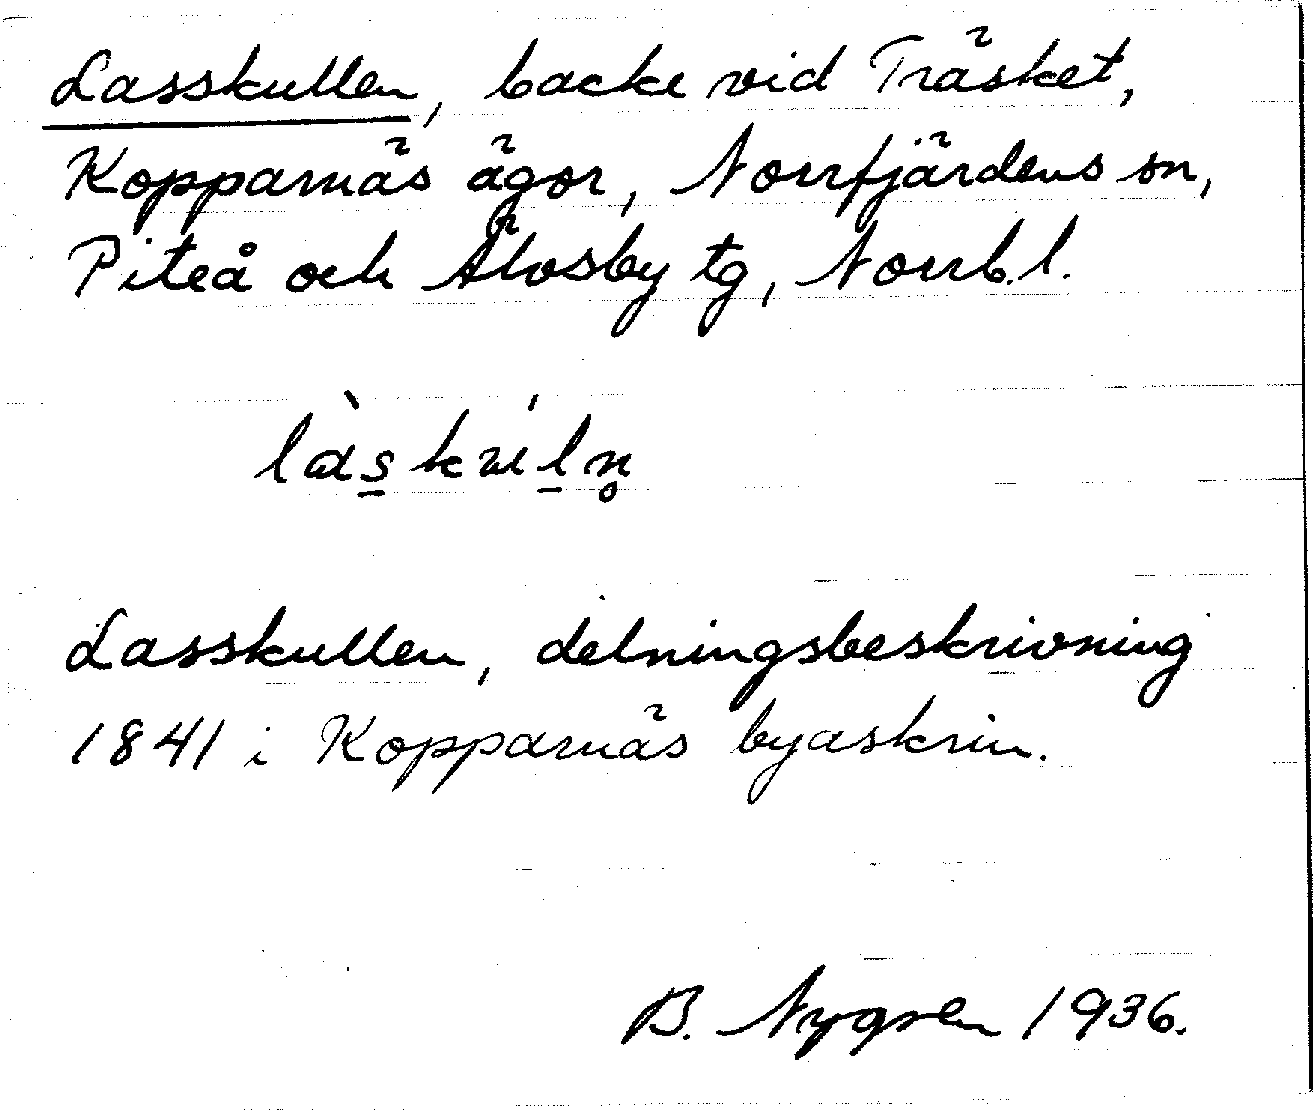 Lasskullen, backe vid Träsket,
Kopparnäs ägor, Norrfjärdens sn,
Piteå och Älvsby tg, Norrb. l.
Lasskullen, delningsbeskrivning
1841 i Kopparnäs byaskrin.
B. Nygren 1936.